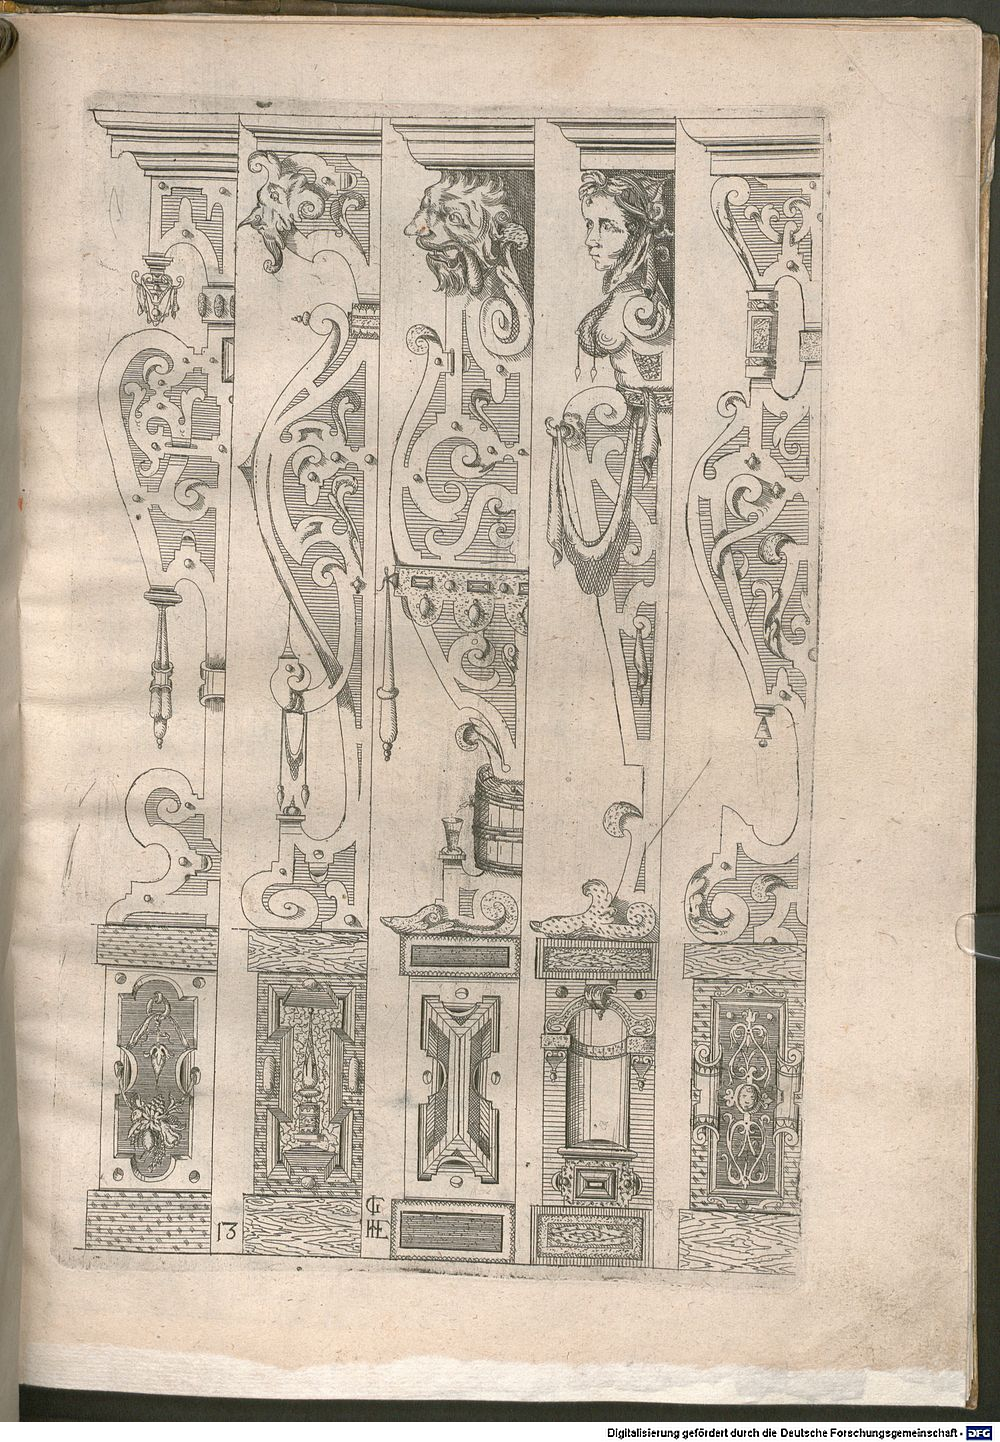 13
G
HE
Digitalisierung gefördert durch die Deutsche Forschungsgemeinschaft - DFG